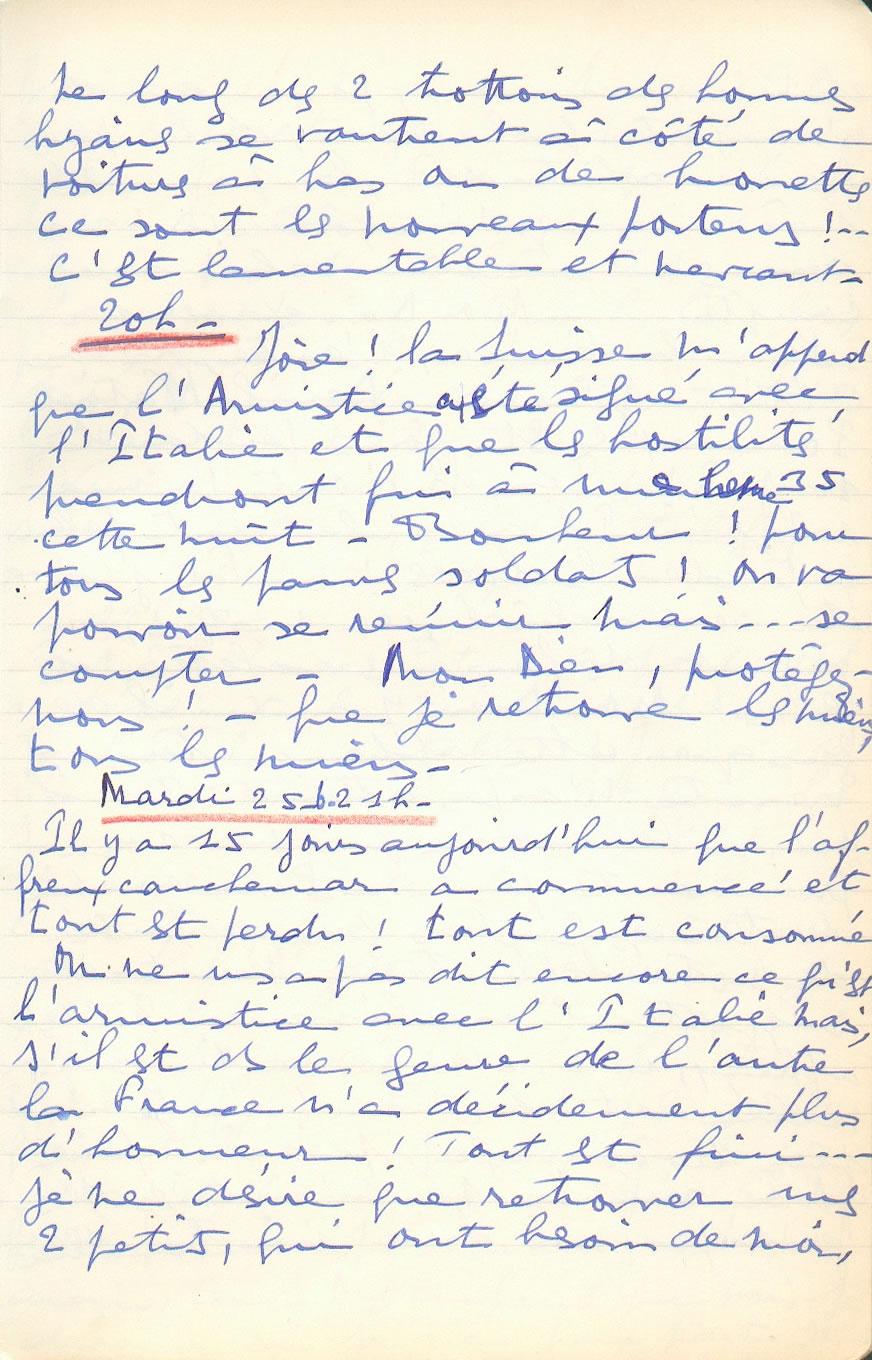 Le long des 2 trottoirs des hommes
se vautrent à côté de
voitures à bras ou de brouettes
ce sont les nouveaux porteurs !..
C'est lamentable et navrant -
20h -
Joie ! la Suisse m'apprend
que l'Armistice a été signé avec
l'Italie et que les hostilités
prendront fin à une heure 35
cette nuit - Bonheur ! pour
tous les pauvres soldats ! on va
pouvoir se réunir mais ... se
compter - Mon Dieu, protégez-
nous ! - que je retrouve les miens,
tous les miens -
Mardi 25 - 21h -
Il y a 15 jours aujourd'hui que l'af-
freux cauchemar a commencé et
tout est perdu ! tout est consommé
On ne ns a pas dit encore ce qu'est
l'armistice avec l'Italie mais,
s'il est ds le genre de l'autre
la France n'a décidément plus
d'honneur ! Tout est fini ...
je ne désire que retrouver mes
2 petits, qui ont besoin de moi,